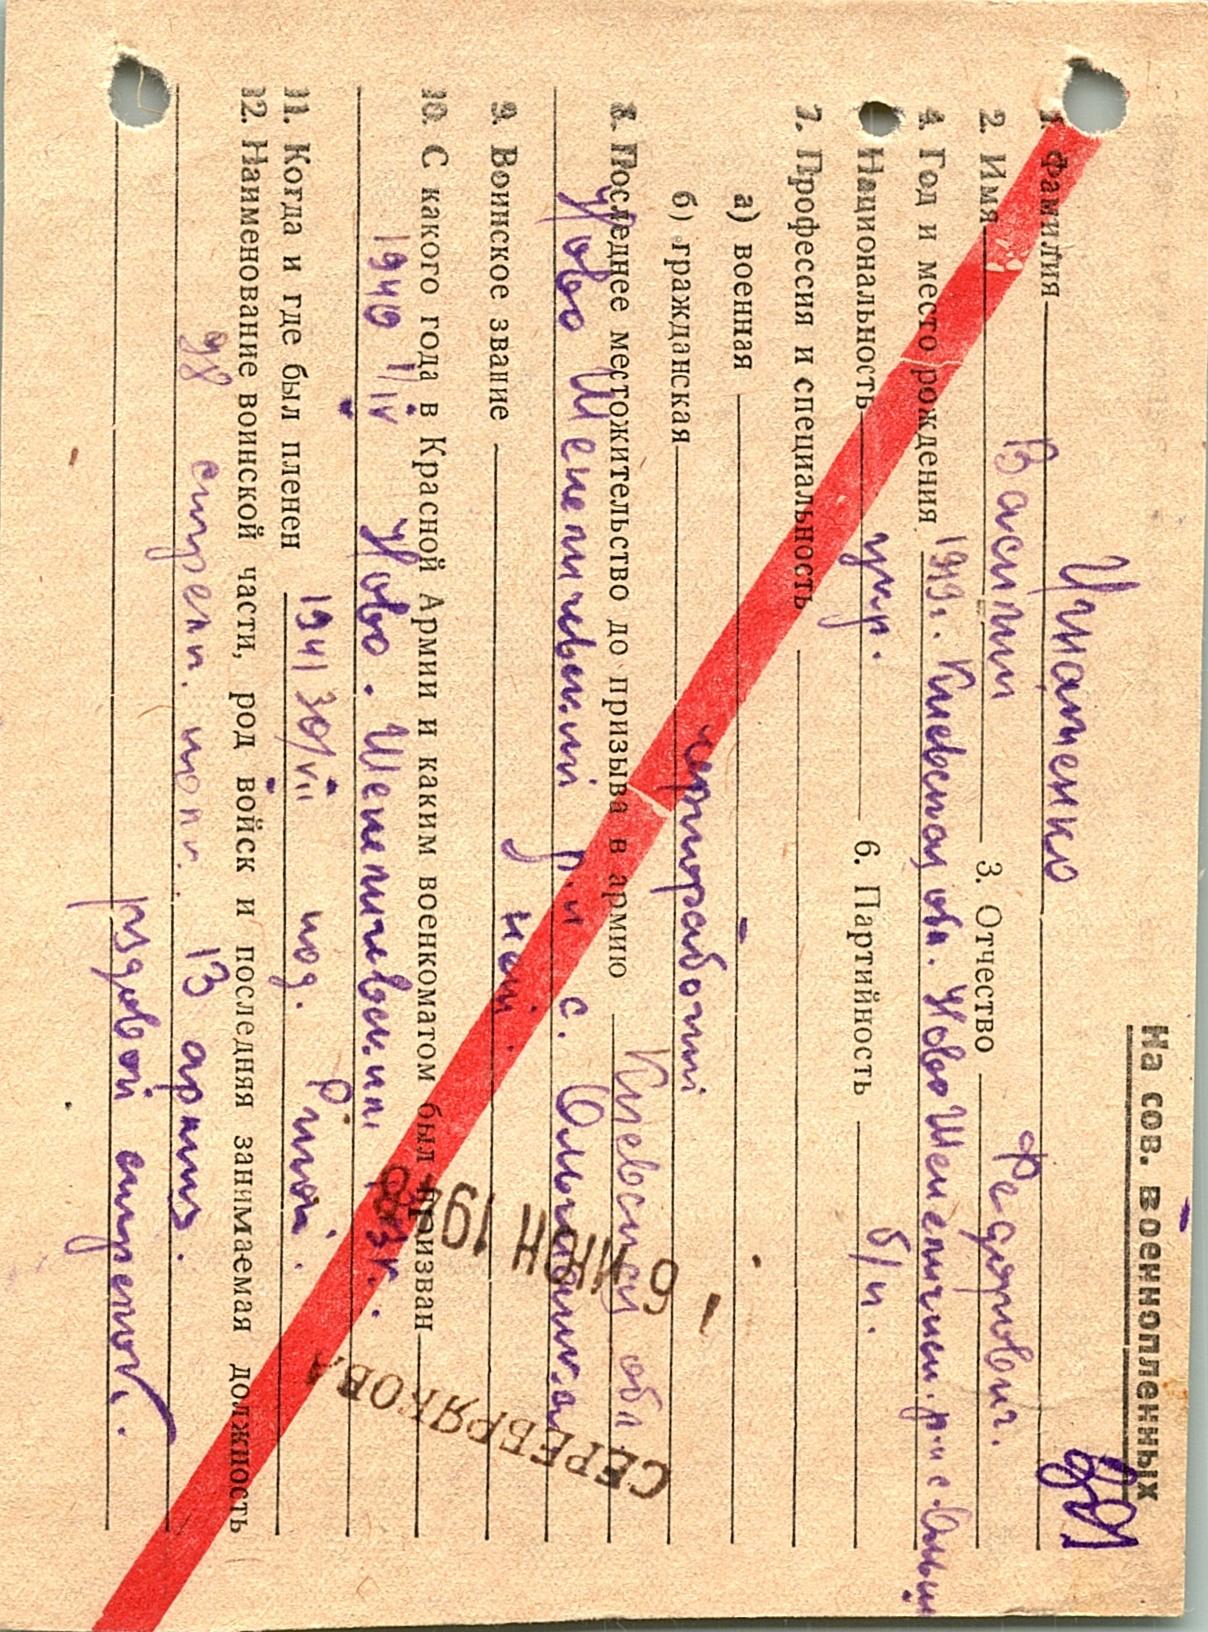 На сов. военнопленных
1. Фамилия Игнатенко
2. Имя Василий 3. Отчество Федорович.
4. Год и место рождения 1919г. Киевская обл. Ново Шепеличский р-н с. Ольш
Национальность укр. 6. Партийность б/п.
7. Профессия и специальность
а) военная
б) гражданская чернорабочий
8. Последнее местожительство до призыва в армию Киевская обл
Ново Шепеличевский р-н с.
9. Воинское звание
10. С какого года в Красной Армии и каким военкоматом был призван
1940 1/IV Ново. Шепеличевским
11. Когда и где был пленен 1941 30/VII под.
12. Наименование воинской части, род войск и последняя занимаемая должность
98 стрелк. полк. 13 армия.
ездовой стрелок.
6 ИЮН 1948
СЕРЕБРЯКОВА